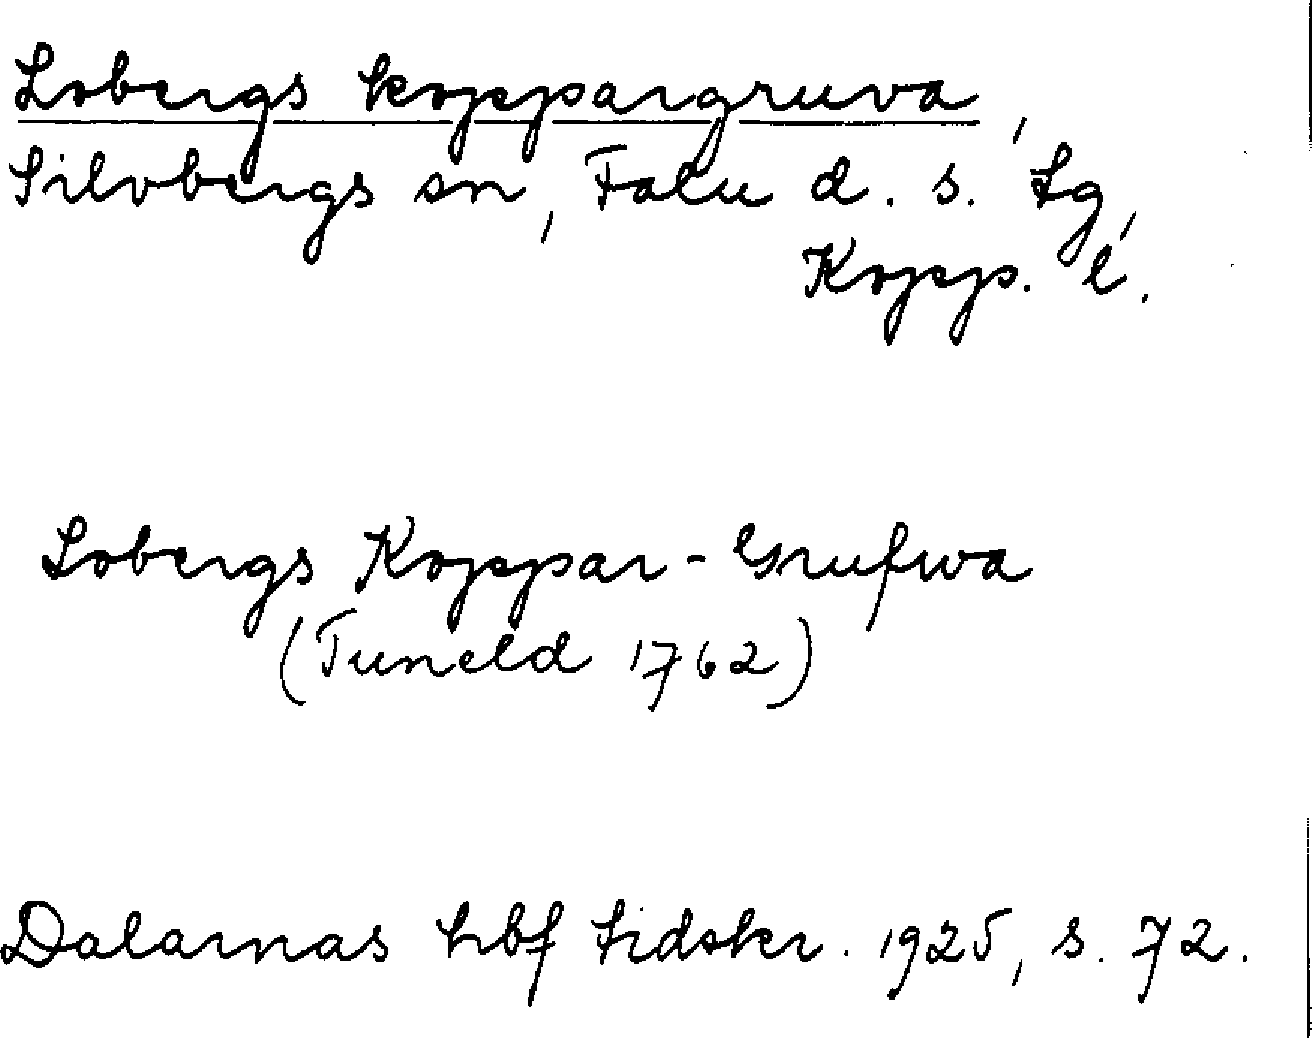 Lobergs koppargruva,
Silvbergs sn, Falu d. s. tg,
Kopp. l.
Lobergs Koppar-Grufwa
(Tuneld 1762)
Dalarnas hbf tidskr. 1925, s. 72.